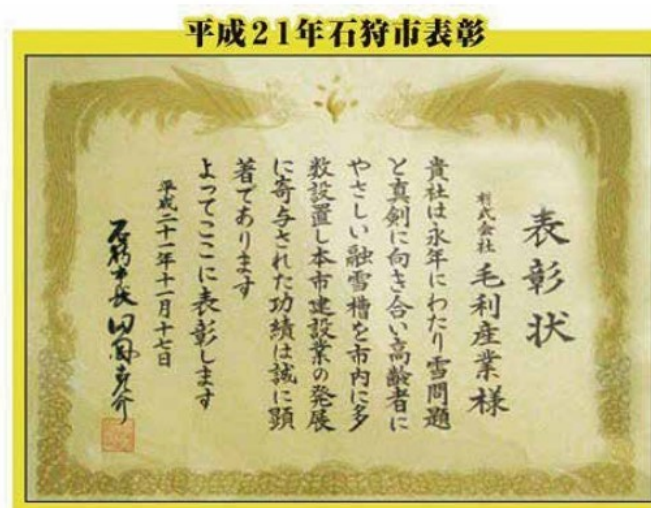 平成21年石狩市表彰
表彰状
株式会社 毛利産業様
貴社は永年にわたり雪問題
と真剣に向き合い高齢者に
やさしい融雪槽を市内に多
数設置し本市建設業の発展
に寄与された功績は誠に顕
著であります
よってここに表彰します
平成二十一年十一月十七日
石狩市長 田岡克介